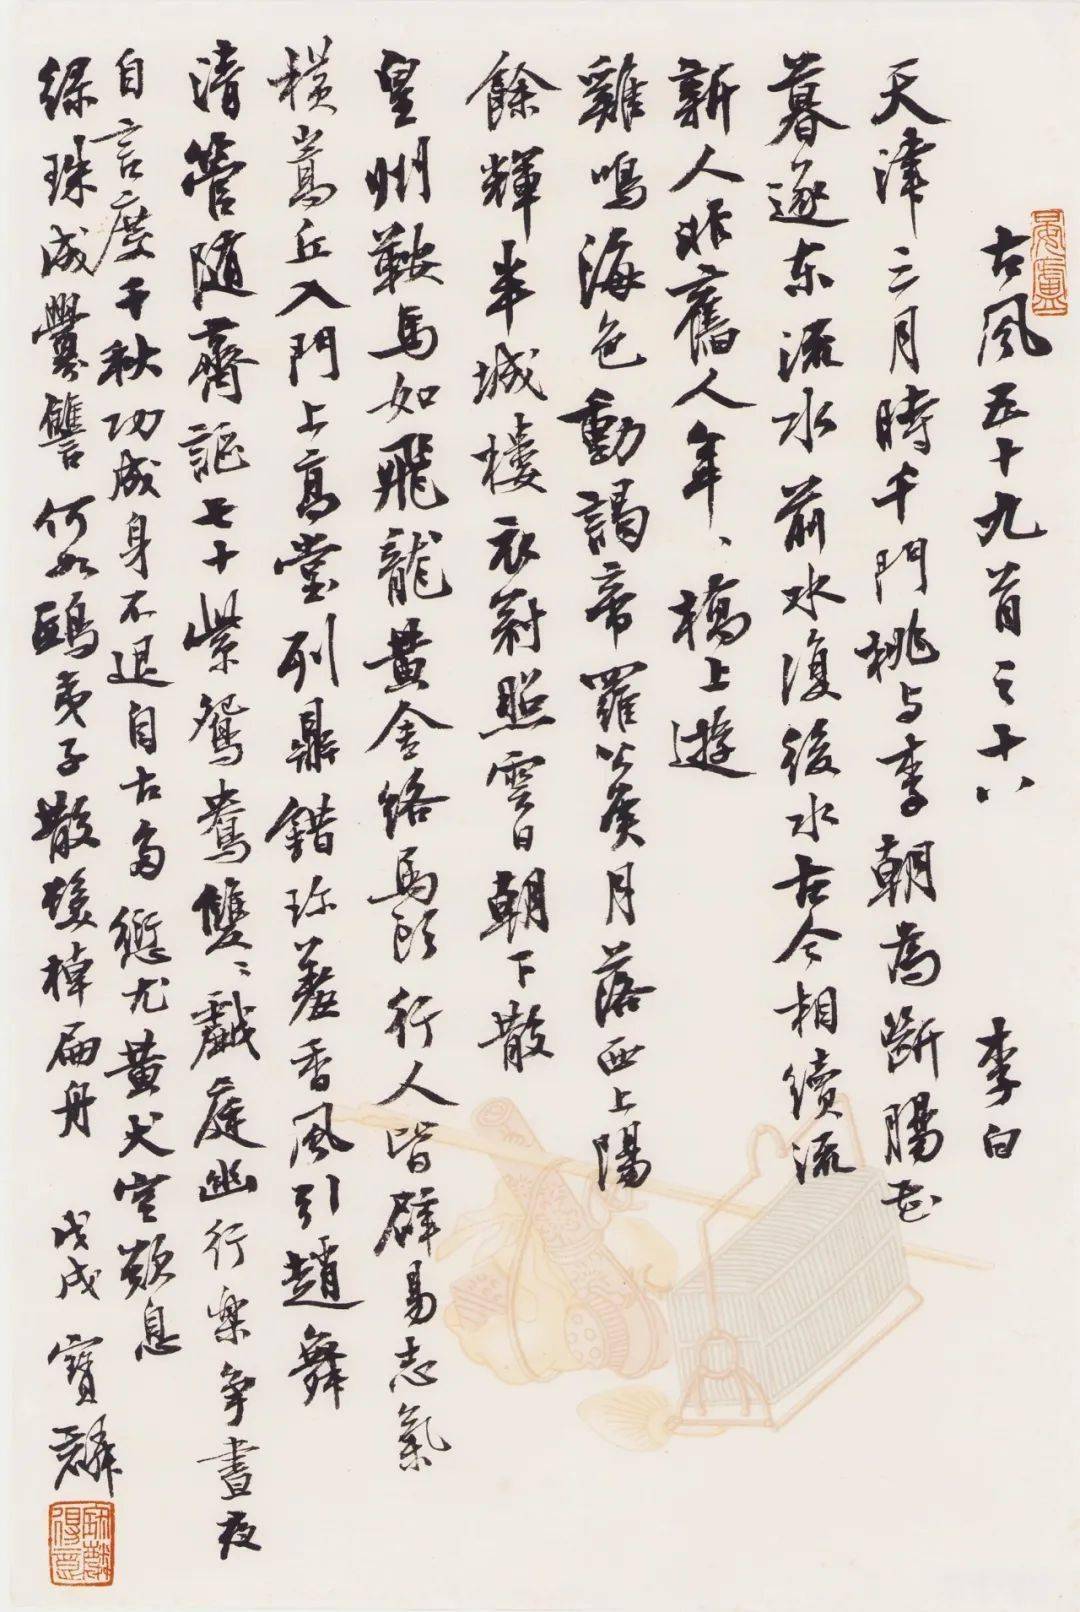 古風五十九首之十八 李白
天津三月時千門桃与李朝為斷腸花
暮逐东流水前水復後水古今相續流
新人非舊人年、橋上遊
雞鳴海色動謁帝羅公侯月落西上陽
餘輝半城樓衣冠照雲日朝下散
皇州鞍馬如飛龍黄金絡馬頭行人皆辟易志氣
横嵩丘入門上高堂列鼎錯珍羞香風引趙舞
清管随齊謳七十紫鴛鴦雙〻戲庭幽行樂争晝夜
自言度千秋功成身不退自古多愆尤黄犬空歎息
綠珠成舋讐何如鴟夷子散髮棹扁舟 戊戌 寶麟